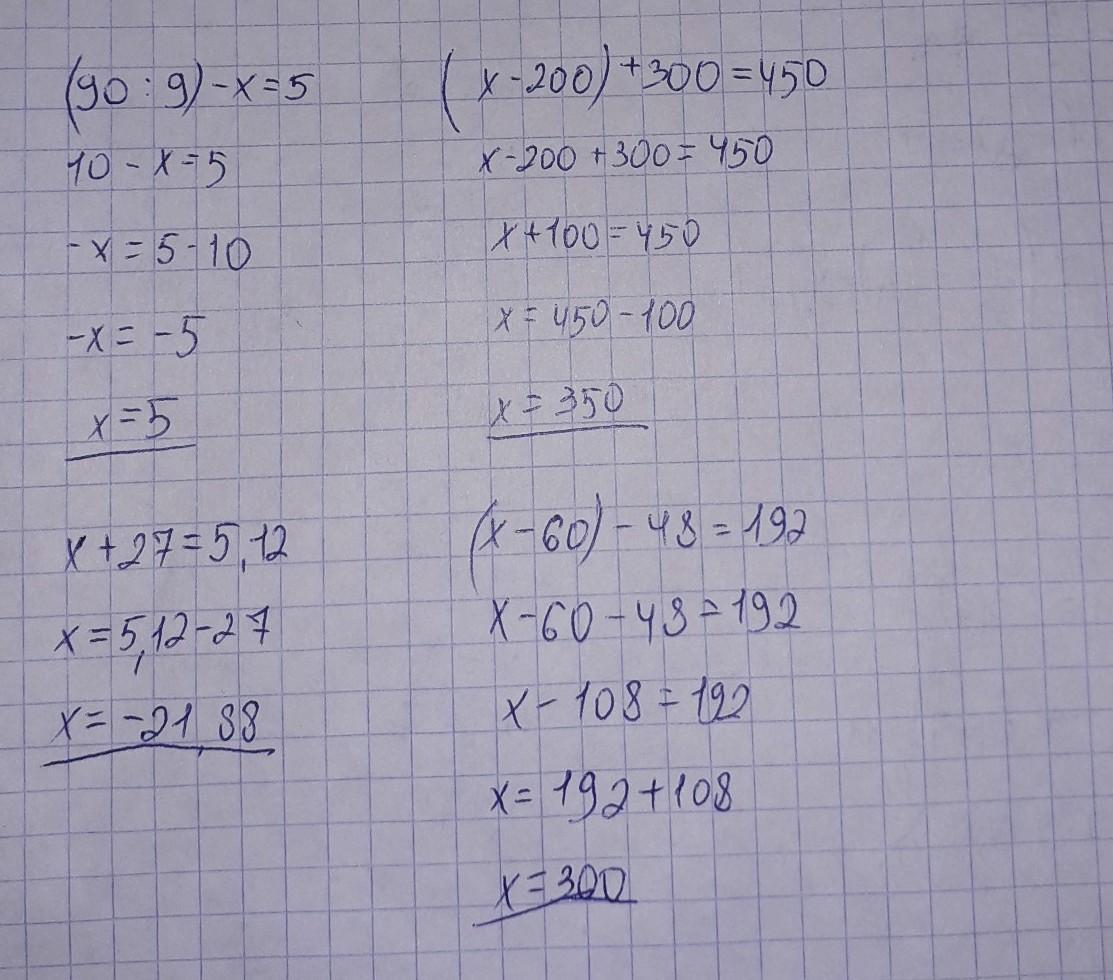 (90 : 9) - x = 5
10 - x = 5
-x = 5 - 10
-x = -5
x = 5
(x - 200) + 300 = 450
x - 200 + 300 = 450
x + 100 = 450
x = 450 - 100
x = 350
x + 27 = 5,12
x = 5,12 - 27
x = -21,88
(x - 60) - 48 = 192
x - 60 - 48 = 192
x - 108 = 192
x = 192 + 108
x = 300